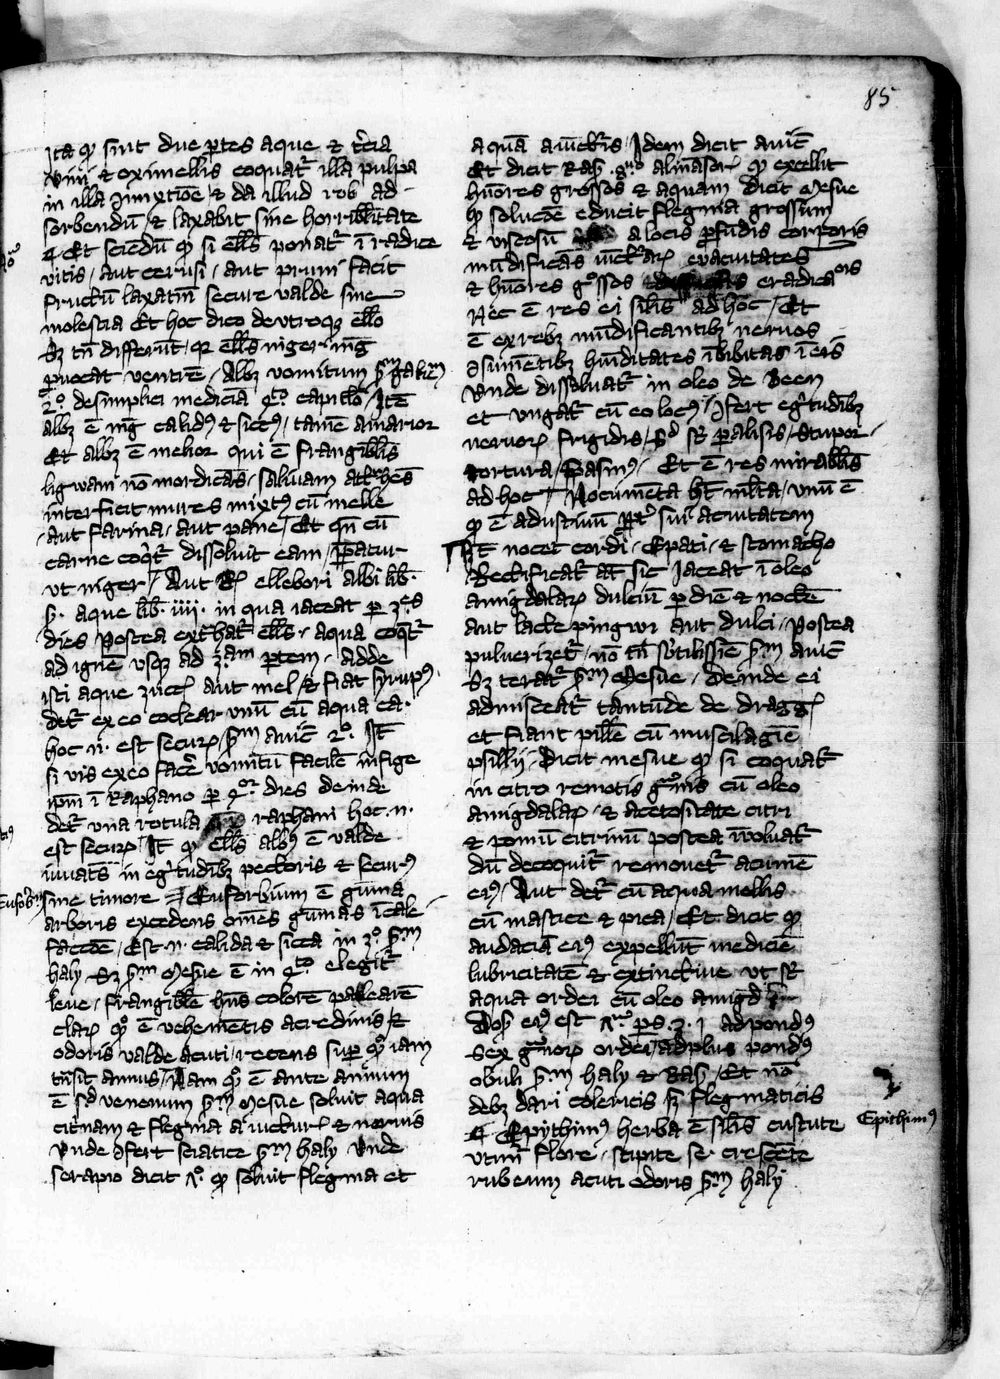 85
Ita qꝫ sint due ꝑtes aque & t̾cia
vini & oximellis coquat᷑ illa pulpa
in illa ꝯmixtiōe & da illud rob ad
sorbendū & laxabit sine horribilitate
Et sciēdū qꝫ si ellꝫ ponat᷑ ī radice
vitis aut cerusi aut pruni facit
fructū laxatiū secure valde sine
molestia Et hoc dico de vtroqꝫ ellō
Sꝫ tn̄ differūt qꝛ ellꝫ niger mg̅
ꝓuocat ventrē Albꝫ vomitum ẜm galienū
2º de simplici medicīa qº capitlo Itē
albꝫ ē mg̅ calidꝰ & siccꝰ tamē amarior
Et albꝫ ē melior qui ē frangiblis
ligwam nō mordicās saliuam att̾hēs
interficit mures mixtꝰ cū melle
aut farina aut pane Et qn̄ cū
carne coqͥt᷑ dissoluit eam ꝑatur
vt niger Aut R ellebori albi lib.
ẞ. aque lib. iiii. in qua iaceat per 3es
dies Postea ext̾hat᷑ ellꝫ aqua coqͥt᷑
ad ignē vsqꝫ ad 3am ꝑtem adde
isti aque zucꝝ aut mel & fiat syrupꝰ.
det᷑ ex eo coclear vnū cū aqua ca.
hoc .n. est securꝝ ẜm auic̅ 2º. It̄
si vis ex eo facē vomitū facilē infige
ip̄m ī Raphano per qor dies deinde
det᷑ vna rotula raphani hoc .n.
est securꝝ It̄ qꝫ ellꝫ albꝰ ē valde
iuuatīs in egͥtudībꝫ pectoris & securꝰ
sine timore Euforbium ē guma
arboris excedens om̄es gūmas ī cale
factōe Est .n. calida & sicca in 3º ẜm
haly Sꝫ ẜm Mesue ē in qto elegit᷑
leue frangibile hn̄s colorē pallearē
claꝝ qꝫ ē vehemētis acredinis &
odoris valde acuti recens suꝑ qꝫ iam
tn̄sit annus Nam qꝫ ē ante annum
ē sꝫ venenum ẜm Mesue soluit aqua
citrinam & flegma a iuncturꝭ & neruis
Vnde ꝯfert sciatice ẜm haly Vnde
serapio dicit Aº. qꝫ soluit flegma et
aquā a iuncturis Idem dicit auic̅
Et dicit Rasꝭ almāsoꝝ qꝫ expellit
hūores grossos & aquam dicit Mesue
qꝫ soluēdo educit flegma grossum
& viscosū a locis ꝓfūdis corporis
mūdificās iūcturaꝝ euacuitates
& hūores gͦssos eradicās
Nec ē res ei silis ad hoc Et
ē ex rebꝫ mūdificantibꝫ neruos
ꝯsumētibꝫ hūiditates ībibitas ī eis
Vnde dissoluat᷑ in oleo de Been
et vngat᷑ cū eo locꝰ ꝯfert egͥtudībꝫ
neruoꝝ frigidis sꝫ sꝫ ꝑalisis stupor
tortura spasmꝰ Et ē res mirabilis
ad hoc Nocumēta ht̄ multa vnū ē
qꝫ ē adustiuū ꝓpt̾ sui acuitatem
It̄ nocet cordi Epati & stomacho
Rectificat᷑ at̄ sic Iaceat ī oleo
amigdalaꝝ dulciū per diē & noctē
aut lacte pingwi aut dulci Postea
pulueriset᷑ nō tn̄ subtilissime ẜm auic̅
Sꝫ terat᷑ ẜm Mesue Deinde ei
admisceat᷑ tantūde de dragꝭ
et fiant pillē cū muscilagie
psillij Dicit mesue qꝫ si coquat᷑
in citro remotis gͣnis cū oleo
amigdalaꝝ & acetositate citri
& pomū citrinū postea īvoluat᷑
dū decoquit᷑ remouet᷑ acumē
eiꝰ Aut det᷑ cū acqua mellis
cū mastice & pica Et dicit qꝫ
audaciā eiꝰ expellūt medicie
lubricitatē & extinctiue vt sꝫ
aqua ordei cū oleo amigd
Dosꝭ eiꝰ est a ꝑs. 3. i ad pondꝰ
sex gͣnoꝝ ordei ad plus pondꝰ
oboli ẜm haly & Rasꝭ Et nō
debꝫ dari colericis sꝫ flegmaticis
Epythimꝰ herba ē silis custute
vtim̄ flore stipite se. crescēte
rubeum acuti odoris ẜm haly
Epithimꝰ